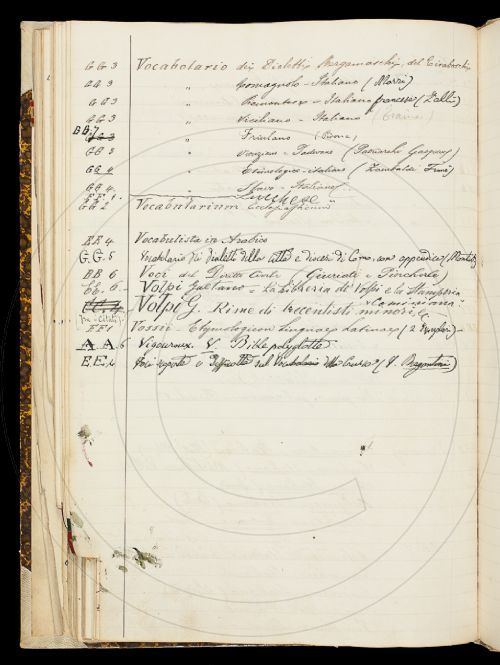 GG 3 Vocabolario dei Dialetti Bergamaschi, del Tiraboschi
GG 3 " Romagnolo - Italiano (Morri)
GG 3 " Piemontese - Italiano francese (Zalli)
GG 3 " Siciliano - Italiano (Traina)
BB.7 GG 3 " Friulano (Pirona)
GG 3 " Veneziano - Padovano (Patriarchi Gasparo)
GG 4 " Etimologico - italiano (Zambaldi Franc)
GG 4. " Slavo - Italiano
EE 1. Lucchese
GG 2 Vocabularium Ecclesiasticum
EE 4 Vocabulista in Arabico
G.G.5 Vocabolario dei dialetti della città e diocesi di Como, con appendice (Monti)
BB 6 Voci del Diritto Civile (Giuriati e
EE. 6 - Volpi Gaetano - La Libreria de' Volpi e la Stamperia
Cominiana"
Volpi G. Rime di trecentisti minori
EE 1 Vossii - Etymologicon Linguae Latinae (2
A A 6 Vigouroux. V. Bible polyglotte
E E. Voci e nel Vocabolario della Crusca (V.